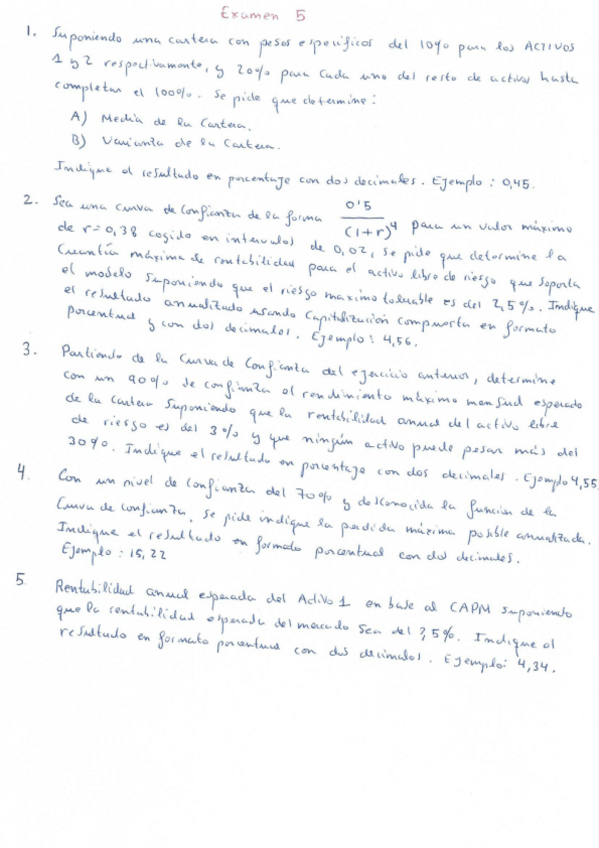 Examen 5
1. Suponiendo una cartera con pesos específicos del 10% para los ACTIVOS
1 y 2 respectivamente, y 20% para cada uno del resto de activos hasta
completar el 100%. Se pide que determine:
A) Media de la Cartera.
B) Varianza de la Cartera.
Indique el resultado en porcentaje con dos decimales. Ejemplo: 0,45.
2. Sea una curva de confianza de la forma 0'5/(1+r)^4 para un valor máximo
de r=0,38 cogido en intervalos de 0,02, se pide que determine la
Cuantía máxima de rentabilidad para el activo libre de riesgo que soporta
el modelo suponiendo que el riesgo maximo tolerable es del 2,5%. Indique
el resultado anualizado usando Capitalización compuesta en formato
porcentual y con dos decimales. Ejemplo: 4,56.
3. Partiendo de la Curva de Confianza del ejercicio anterior, determine
con un 90% de confianza el rendimiento máximo mensual esperado
de la cartera suponiendo que la rentabilidad anual del activo libre
de riesgo es del 3% y que ningún activo puede pesar más del
30%. Indique el resultado en porcentaje con dos decimales. Ejemplo 4,55.
4. Con un nivel de confianza del 70% y desconocida la función de la
Curva de confianza, se pide indique la perdida máxima posible annualizada.
Indique el resultado en formato porcentual con dos decimales.
Ejemplo: 15,22
5. Rentabilidad anual esperada del Activo 1 en base al CAPM suponiendo
que la rentabilidad esperada del mercado sea del 3,5%. Indique el
resultado en formato porcentual con dos decimales. Ejemplo: 4,34.